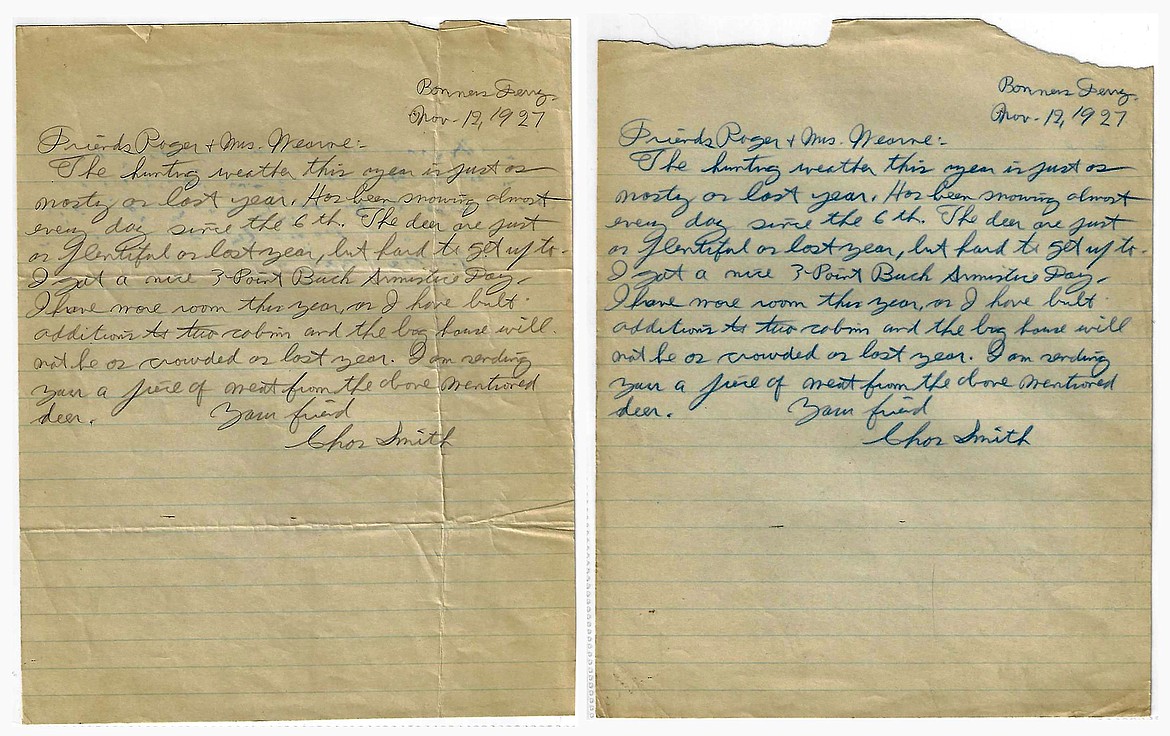 Bonners Ferry.
Nov. 12, 1927
Friends Roger + Mrs. Wearne:-
The hunting weather this year is just as
nasty as last year. Has been snowing almost
every day since the 6 th. The deer are just
as plentiful as last year, but hard to get up to.
I got a nice 3-Point Buck Armistice Day.
I have more room this year, as I have built
additions to two cabins and the big house will
not be as crowded as last year. I am sending
your a piece of meat from the above mentioned
deer. Your friend
Chas Smith
Bonners Ferry.
Nov. 12, 1927
Friends Roger + Mrs. Wearne:-
The hunting weather this year is just as
nasty as last year. Has been snowing almost
every day since the 6 th. The deer are just
as plentiful as last year, but hard to get up to.
I got a nice 3-Point Buck Armistice Day.
I have more room this year, as I have built
additions to two cabins and the big house will
not be as crowded as last year. I am sending
your a piece of meat from the above mentioned
deer. Your friend
Chas Smith